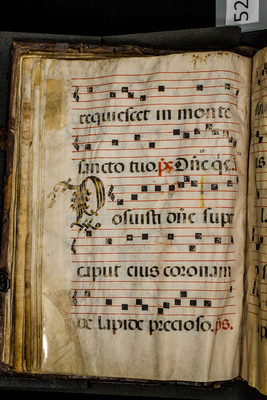 52
requiescet in monte
sancto tuo. ps Dñe q̃s.
Posuisti dñe supe
caput eius coronam
de lapide precioso. ps.